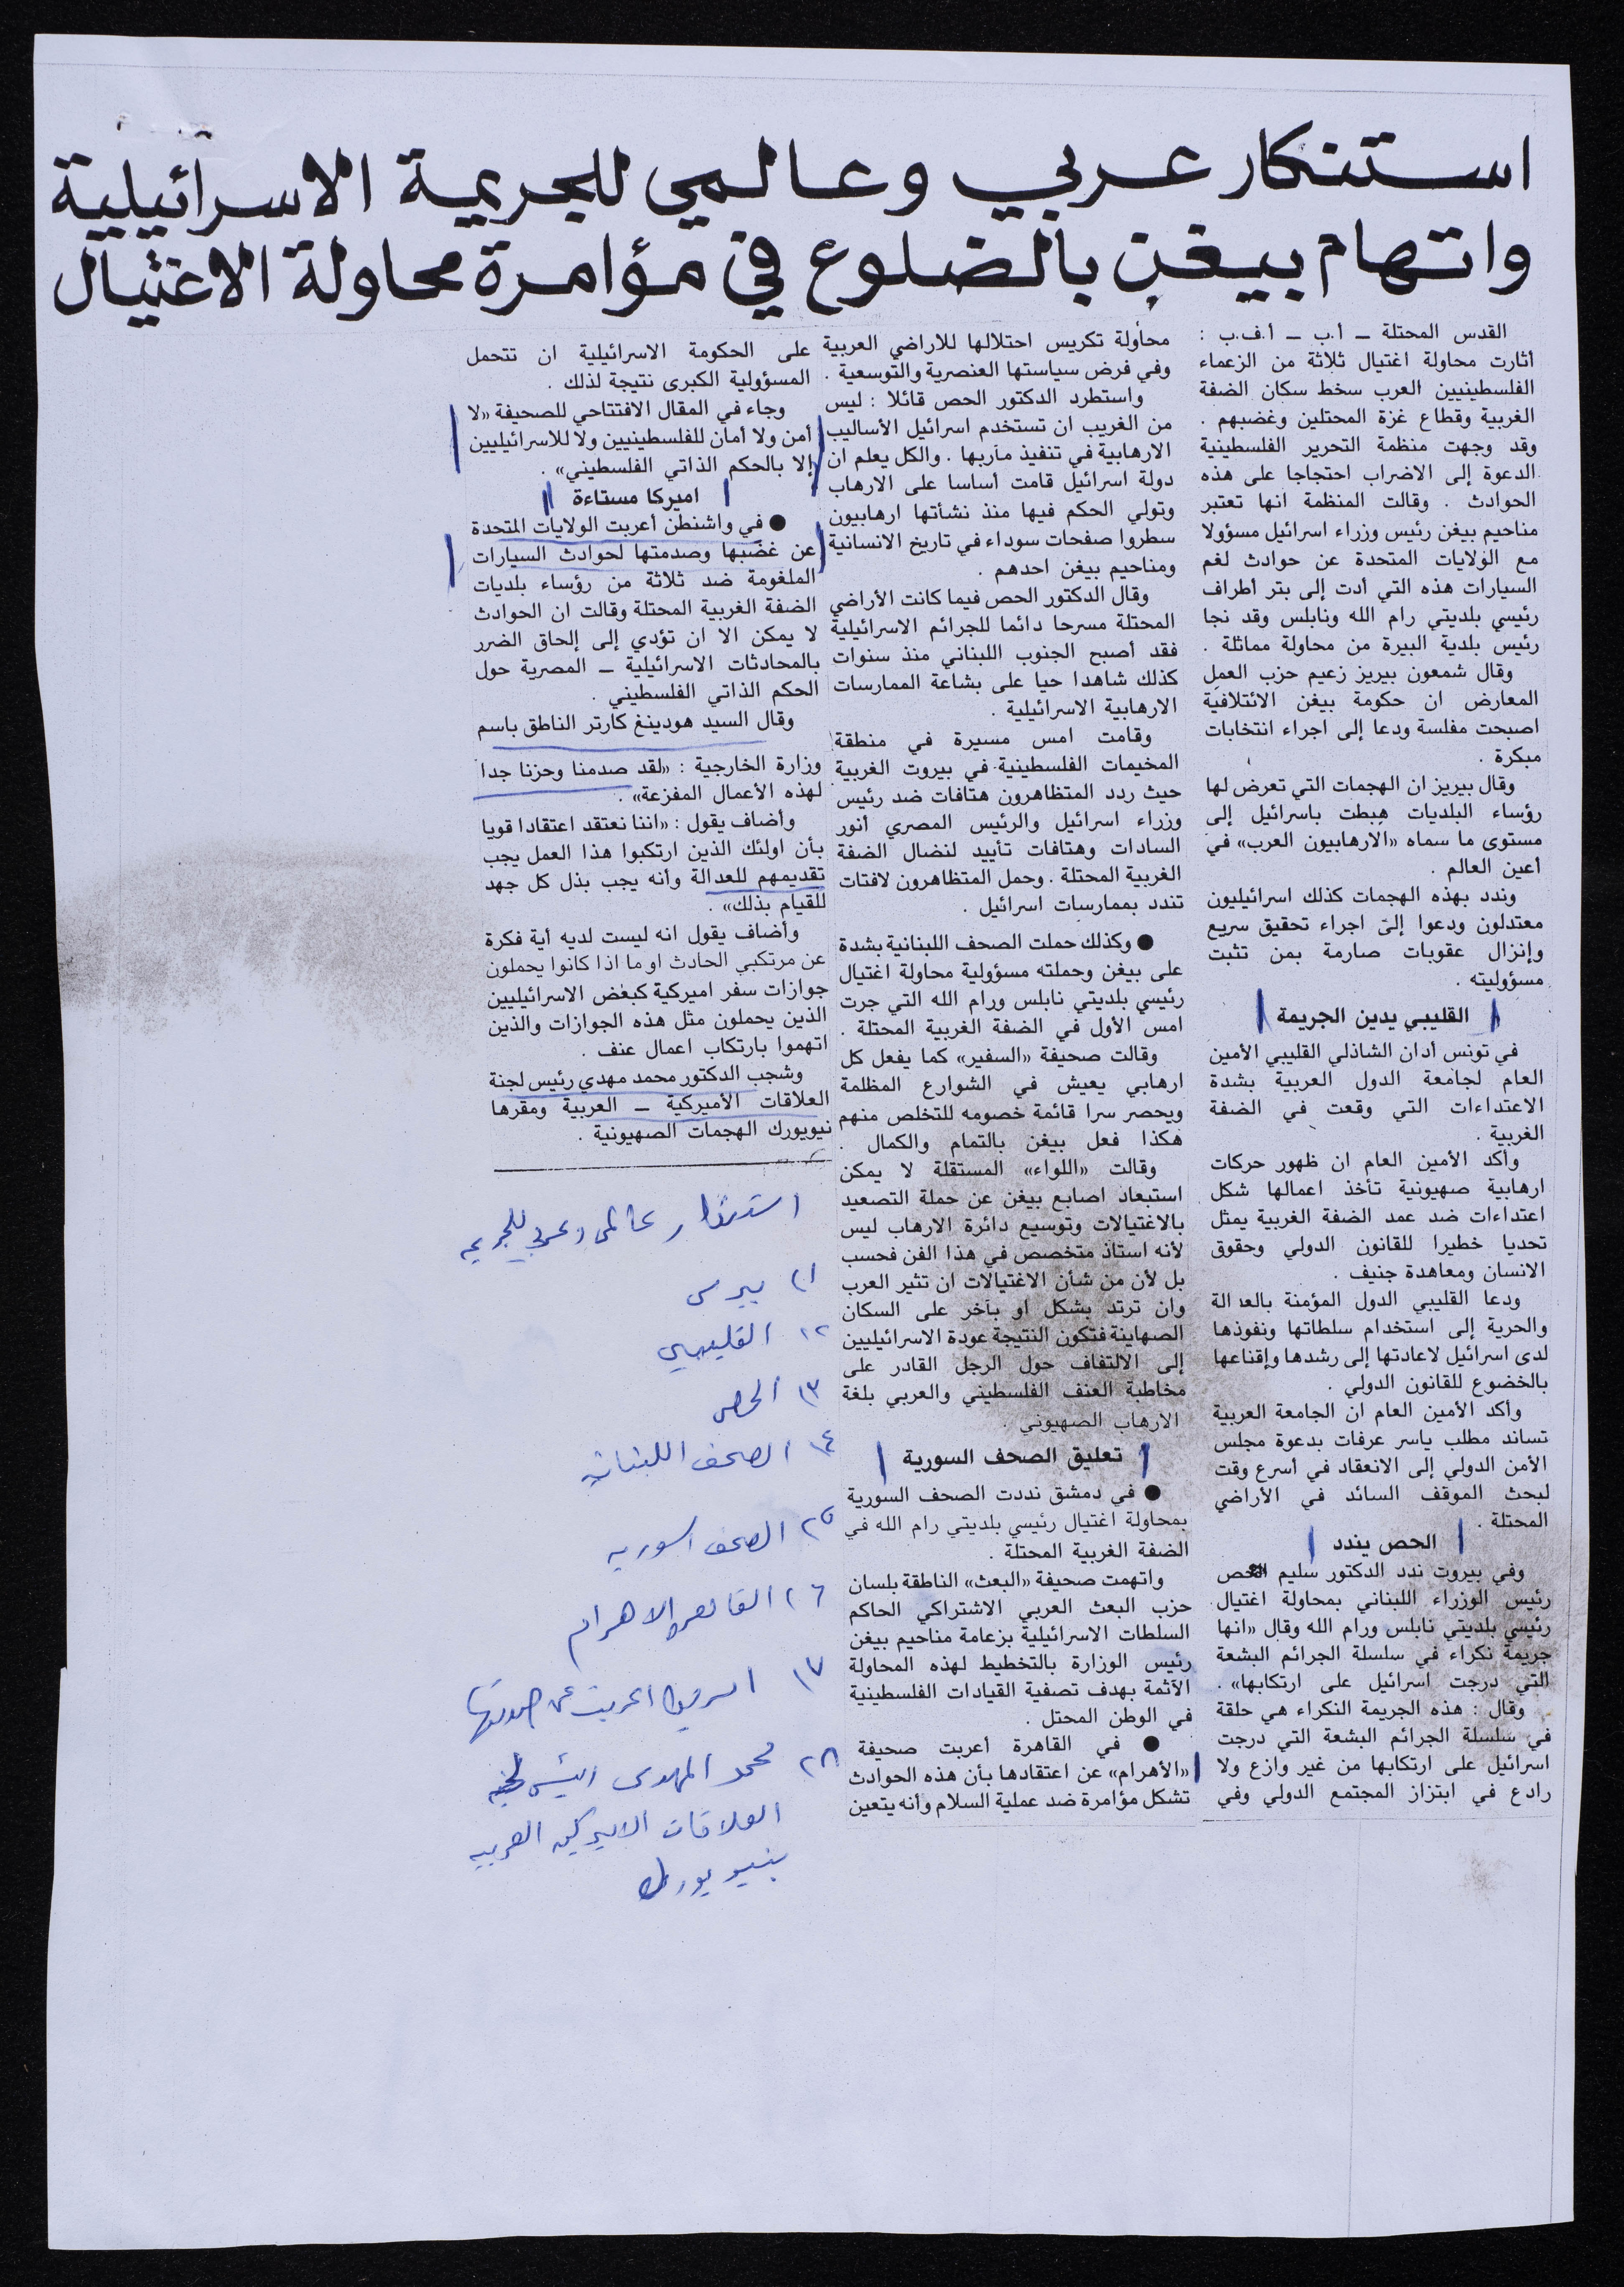 استنكار عربي وعالمي للجريمة الاسرائيلية
واتهام بيغن بالضلوع في مؤامرة محاولة الاغتيال
القدس المحتلة ــ أ.ب ــ أ.ف.ب :
أثارت محاولة اغتيال ثلاثة من الزعماء
الفلسطينيين العرب سخط سكان الضفة
الغربية وقطاع غزة المحتلين وغضبهم .
وقد وجهت منظمة التحرير الفلسطينية
الدعوة إلى الاضراب احتجاجا على هذه
الحوادث . وقالت المنظمة انها تعتبر
مناحيم بيغن رئيس وزراء اسرائيل مسؤولا
مع الولايات المتحدة عن حوادث لغم
السيارات هذه التي أدت إلى بتر أطراف
رئيسي بلديتي رام الله ونابلس وقد نجا
رئيس بلدية البيرة من محاولة مماثلة .
وقال شمعون بيريز زعيم حزب العمل
المعارض ان حكومة بيغن الائتلافية
اصبحت مفلسة ودعا إلى اجراء انتخابات
مبكرة .
وقال بيريز ان الهجمات التي تعرض لها
رؤساء البلديات هبطت باسرائيل إلى
مستوى ما سماه «الارهابيون العرب» في
أعين العالم .
وندد بهذه الهجمات كذلك اسرائيليون
معتدلون ودعوا إلى اجراء تحقيق سريع
وإنزال عقوبات صارمة بمن تثبت
مسؤوليته .
القليبي يدين الجريمة
في تونس أدان الشاذلي القليبي الأمين
العام لجامعة الدول العربية بشدة
الاعتداءات التي وقعت في الضفة
الغربية .
وأكد الأمين العام ان ظهور حركات
ارهابية صهيونية تأخذ اعمالها شكل
اعتداءات ضد عمد الضفة الغربية يمثل
تحديا خطيرا للقانون الدولي وحقوق
الانسان ومعاهدة جنيف .
ودعا القليبي الدول المؤمنة بالعدالة
والحرية إلى استخدام سلطاتها ونفوذها
لدى اسرائيل لاعادتها إلى رشدها وإقناعها
بالخضوع للقانون الدولي .
وأكد الأمين العام ان الجامعة العربية
تساند مطلب ياسر عرفات بدعوة مجلس
الأمن الدولي إلى الانعقاد في أسرع وقت
لبحث الموقف السائد في الأراضي
المحتلة .
الحص يندد
وفي بيروت ندد الدكتور سليم الحص
رئيس الوزراء اللبناني بمحاولة اغتيال
رئيسي بلديتي نابلس ورام الله وقال «انها
جريمة نكراء في سلسلة الجرائم البشعة
التي درجت اسرائيل على ارتكابها» .
وقال : هذه الجريمة النكراء هي حلقة
في سلسلة الجرائم البشعة التي درجت
اسرائيل على ارتكابها من غير وازع ولا
رادع في ابتزاز المجتمع الدولي وفي
محاولة تكريس احتلالها للاراضي العربية
وفي فرض سياستها العنصرية والتوسعية .
واستطرد الدكتور الحص قائلا : ليس
من الغريب ان تستخدم اسرائيل الأساليب
الارهابية في تنفيذ مآربها . والكل يعلم ان
دولة اسرائيل قامت أساسا على الارهاب
وتولي الحكم فيها منذ نشأتها ارهابيون
سطروا صفحات سوداء في تاريخ الانسانية
ومناحيم بيغن احدهم .
وقال الدكتور الحص فيما كانت الأراضي
المحتلة مسرحا دائما للجرائم الاسرائيلية
فقد أصبح الجنوب اللبناني منذ سنوات
كذلك شاهدا حيا على بشاعة الممارسات
الارهابية الاسرائيلية .
وقامت امس مسيرة في منطقة
المخيمات الفلسطينية في بيروت الغربية
حيث ردد المتظاهرون هتافات ضد رئيس
وزراء اسرائيل والرئيس المصري أنور
السادات وهتافات تأييد لنضال الضفة
الغربية المحتلة . وحمل المتظاهرون لافتات
تندد بممارسات اسرائيل .
● وكذلك حملت الصحف اللبنانية بشدة
على بيغن وحملته مسؤولية محاولة اغتيال
رئيسي بلديتي نابلس ورام الله التي جرت
امس الأول في الضفة الغربية المحتلة .
وقالت صحيفة «السفير» كما يفعل كل
ارهابي يعيش في الشوارع المظلمة
ويحصر سرا قائمة خصومه للتخلص منهم
هكذا فعل بيغن بالتمام والكمال .
وقالت «اللواء» المستقلة لا يمكن
استبعاد اصابع بيغن عن حملة التصعيد
بالاغتيالات وتوسيع دائرة الارهاب ليس
لأنه استاذ متخصص في هذا الفن فحسب
بل لأن من شأن الاغتيالات ان تثير العرب
وان ترتد بشكل او بآخر على السكان
الصهاينة فتكون النتيجة عودة الاسرائيليين
إلى الالتفاف حول الرجل القادر على
مخاطبة العنف الفلسطيني والعربي بلغة
الارهاب الصهيوني .
تعليق الصحف السورية
● في دمشق نددت الصحف السورية
بمحاولة اغتيال رئيسي بلديتي رام الله في
الضفة الغربية المحتلة .
واتهمت صحيفة «البعث» الناطقة بلسان
حزب البعث العربي الاشتراكي الحاكم
السلطات الاسرائيلية بزعامة مناحيم بيغن
رئيس الوزارة بالتخطيط لهذه المحاولة
الآثمة بهدف تصفية القيادات الفلسطينية
في الوطن المحتل .
● في القاهرة أعربت صحيفة
«الأهرام» عن اعتقادها بأن هذه الحوادث
تشكل مؤامرة ضد عملية السلام وأنه يتعين
على الحكومة الاسرائيلية ان تتحمل
المسؤولية الكبرى نتيجة لذلك .
وجاء في المقال الافتتاحي للصحيفة «لا
أمن ولا أمان للفلسطينيين ولا للاسرائيليين
إلا بالحكم الذاتي الفلسطيني» .
اميركا مستاءة
● في واشنطن أعربت الولايات المتحدة
عن غضبها وصدمتها لحوادث السيارات
الملغومة ضد ثلاثة من رؤساء بلديات
الضفة الغربية المحتلة وقالت ان الحوادث
لا يمكن الا ان تؤدي إلى إلحاق الضرر
بالمحادثات الاسرائيلية ــ المصرية حول
الحكم الذاتي الفلسطيني .
وقال السيد هودينغ كارتر الناطق باسم
وزارة الخارجية : «لقد صدمنا وحزنا جدا
لهذه الأعمال المفزعة» .
وأضاف يقول : «اننا نعتقد اعتقادا قويا
بأن اولئك الذين ارتكبوا هذا العمل يجب
تقديمهم للعدالة وأنه يجب بذل كل جهد
للقيام بذلك» .
وأضاف يقول انه ليست لديه أية فكرة
عن مرتكبي الحادث او ما اذا كانوا يحملون
جوازات سفر اميركية كبعض الاسرائيليين
الذين يحملون مثل هذه الجوازات والذين
اتهموا بارتكاب اعمال عنف .
وشجب الدكتور محمد مهدي رئيس لجنة
العلاقات الأميركية ــ العربية ومقرها
نيويورك الهجمات الصهيونية .
استنكار عالمى وعربى للجريمه
١) بيرس
٢) القليبي
٣) الحص
٤) الصحف اللبنانيه
٥) الصحف السوريه
٦) القاهره الاهرام
٧) امريكا اعربت عن صدمتها
٨) محمد المهدى رئيس لجنه
العلاقات الامريكيه العربيه
بنيويورك